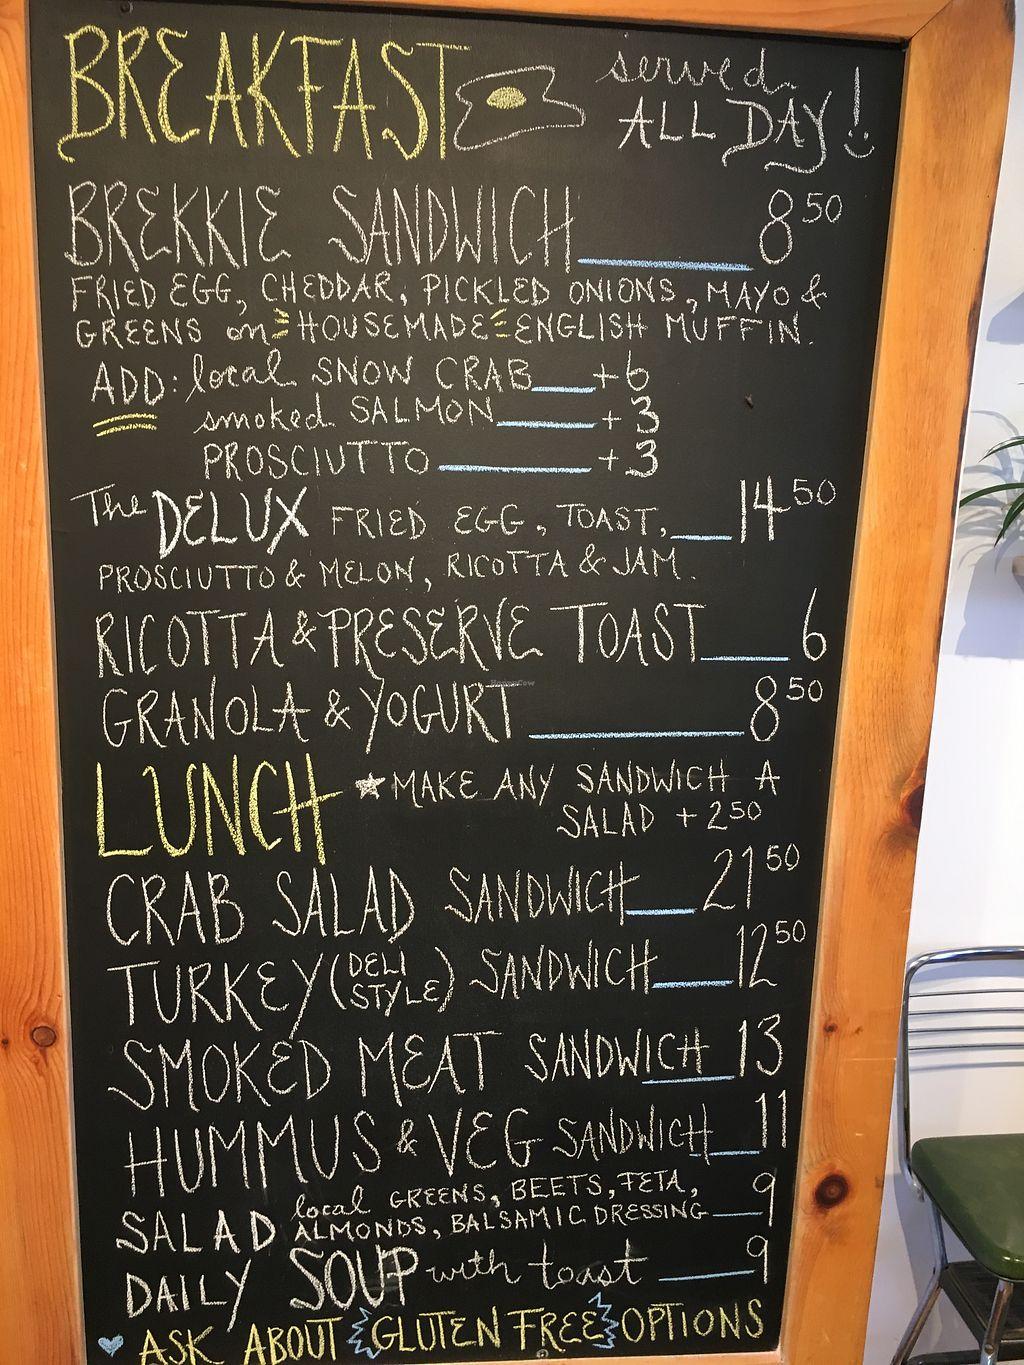 BREAKFAST served
ALL DAY!
BREKKIE SANDWICH 8 50
FRIED EGG, CHEDDAR, PICKLED ONIONS, MAYO &
GREENS on HOUSEMADE ENGLISH MUFFIN.
ADD: local SNOW CRAB +6
smoked SALMON +3
PROSCIUTTO +3
The DELUX FRIED EGG, TOAST, 14 50
PROSCIUTTO & MELON, RICOTTA & JAM.
RICOTTA & PRESERVE TOAST 6
GRANOLA & YOGURT 8 50
LUNCH *MAKE ANY SANDWICH A
SALAD +2 50
CRAB SALAD SANDWICH 21 50
TURKEY (DELI STYLE) SANDWICH 12 50
SMOKED MEAT SANDWICH 13
HUMMUS & VEG SANDWICH 11
SALAD local GREENS, BEETS, FETA,
ALMONDS, BALSAMIC DRESSING 9
DAILY SOUP with toast 9
ASK ABOUT GLUTEN FREE OPTIONS
HappyCow